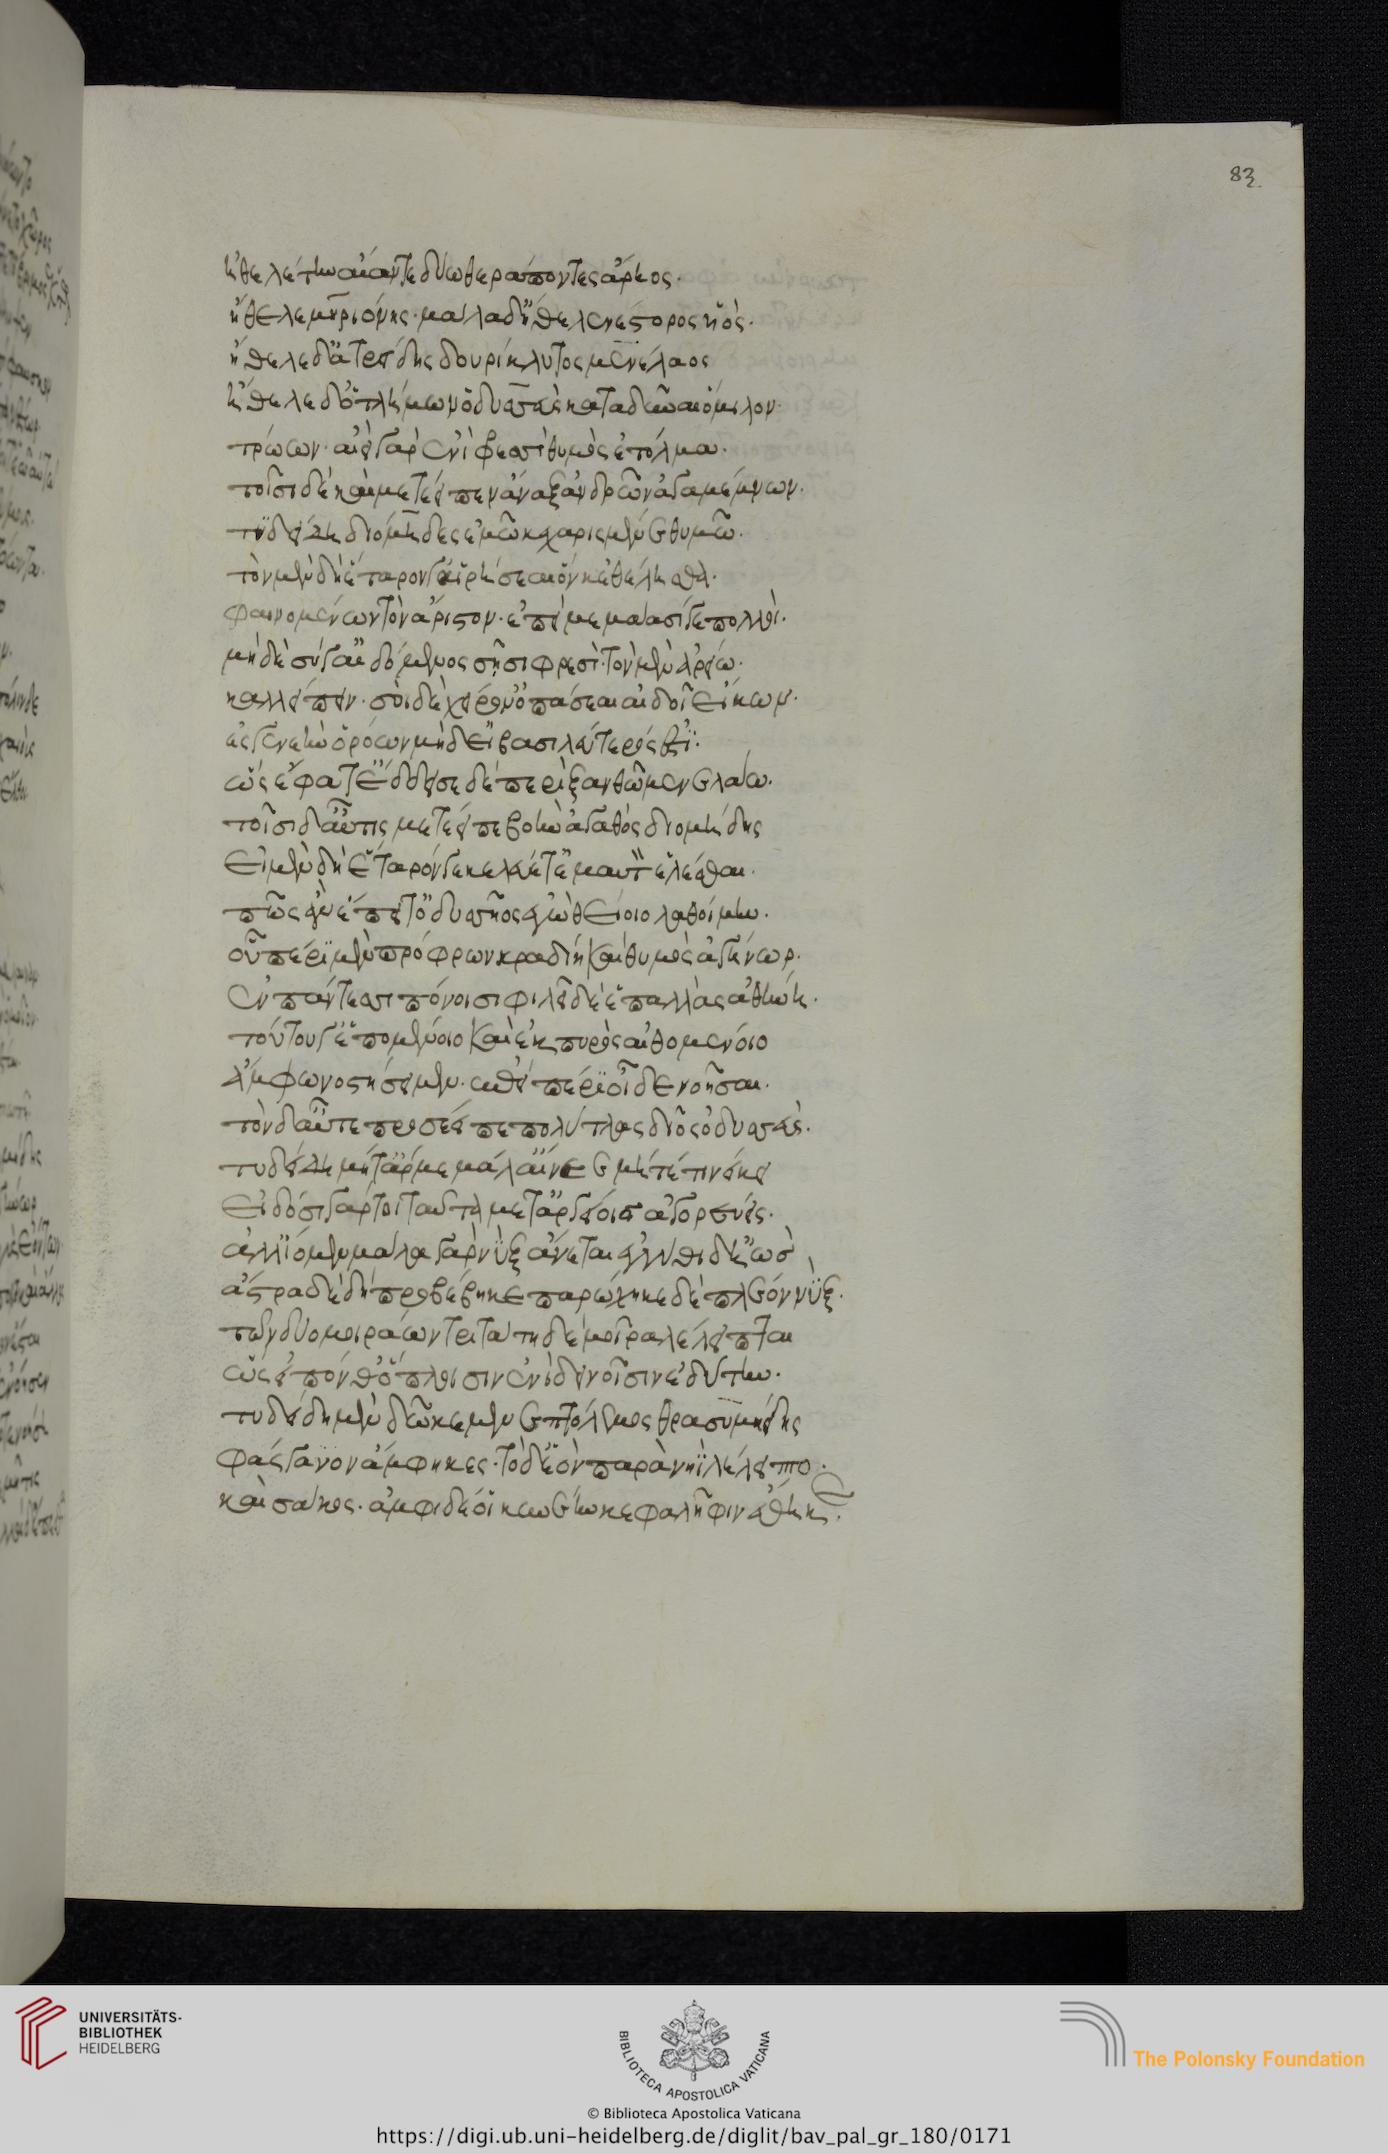 83
ἠθελέτην αἴαντε δύω θεράποντες ἄρηος·
ἤθελε μηριόνης· μάλα δ' ἤθελε νέστορος υἱός·
ἤθελε δ' ἀτρείδης δουρίκλυτος μενέλαος
ἤθελε δ' ὁ τλήμων ὀδυσσεὺς καταδῦναι ὅμιλον·
τρώων· αἰεὶ γὰρ ἐνὶ φρεσὶ θυμὸς ἐτόλμα·
τοῖσι δὲ καὶ μετέειπεν ἄναξ ἀνδρῶν ἀγαμέμνων·
τυδείδη διόμηδες ἐμῶ κεχαρισμένε θυμῶ·
τὸν μὲν δὴ ἕταρον γ' αἱρήσεαι ὅν κ' ἐθέλησθα·
φαινομένων τὸν ἄριστον· ἐπεὶ μεμάασί γε πολλοί·
μὴ δὲ σύ γ' αἰδόμενος σῆσι φρεσὶ· τὸν μὲν ἀρείω·
καλλείπειν· σὺ δὲ χείρον' ὀπάσεαι αἰδοῖ εἴκων·
ἐς γενεὴν ὁρόων μὴ δ' εἰ βασιλεύτερός ἐστι·
ὣς ἔφατ' ἔδδεισε δὲ περὶ ξανθῶ μενελάω·
τοῖσι δ' αὖτις μετέειπε βοὴν ἀγαθὸς διομήδης
εἰ μὲν δὴ ἕταρόν γε κελεύετέ μ' αὐτὸν ἑλέσθαι·
πῶς ἂν ἔπειτ' ὀδυσσῆος ἐγὼ θείοιο λαθοίμην·
οὗ πέρι μὲν πρόφρων κραδίη καὶ θυμὸς ἀγήνωρ·
ἐν πάντεσσι πόνοισι φιλεῖ δέ ἑ παλλὰς ἀθήνη·
τούτου γ' ἑσπομένοιο καὶ ἐκ πυρὸς αἰθομένοιο
ἄμφω νοστήσαιμεν· ἐπεὶ περὶ οἶδε νοῆσαι·
τὸν δ' αὖτε προσέειπε πολύτλας δῖος ὀδυσσεὺς·
τυδείδη μήτ' ἄρ με μάλ' αἴνεε μήτέ τι νείκει
εἰδόσι γάρ τοι ταῦτα μετ' ἀργείοις ἀγορεύεις·
ἀλλ' ἴομεν μάλα γὰρ νὺξ ἄνεται ἐγγύθι δ' ἠὼς
ἄστρα δὲ δὴ προβέβηκε παρώχηκε δὲ πλέον νὺξ·
τῶν δύο μοιράων τριτάτη δ' ἔτι μοῖρα λέλειπται
ὣς εἰπόνθ' ὅπλοισιν ἐνὶ δεινοῖσιν ἐδύτην·
τυδείδη μὲν δῶκε μενεπτόλεμος θρασυμήδης
φάσγανον ἄμφηκες· τὸ δ' ἑὸν παρὰ νηῒ λέλειπτο·
καὶ σάκος· ἀμφὶ δέ οἱ κυνέην κεφαλῆφιν ἔθηκε·
UNIVERSITÄTS-
BIBLIOTHEK
HEIDELBERG
BIBLIOTECA APOSTOLICA VATICANA
The Polonsky Foundation
© Biblioteca Apostolica Vaticana
https://digi.ub.uni-heidelberg.de/diglit/bav_pal_gr_180/0171